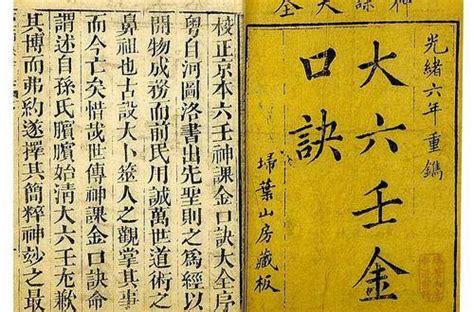 神課大全
光緒六年重鐫
大六壬金
口訣
埽葉山房藏板
校正京本六壬神課金口訣大全序
粵自河圖洛書出先聖則之為經以
開物成務而前民用誠萬世道術之
鼻祖也古設大卜簭人之觀掌其事
而今亡矣惜哉世傳神課金口訣命
謂述自孫氏臏臏始清大六壬尤歉
其博而弗約遂擇其簡粹神妙之最